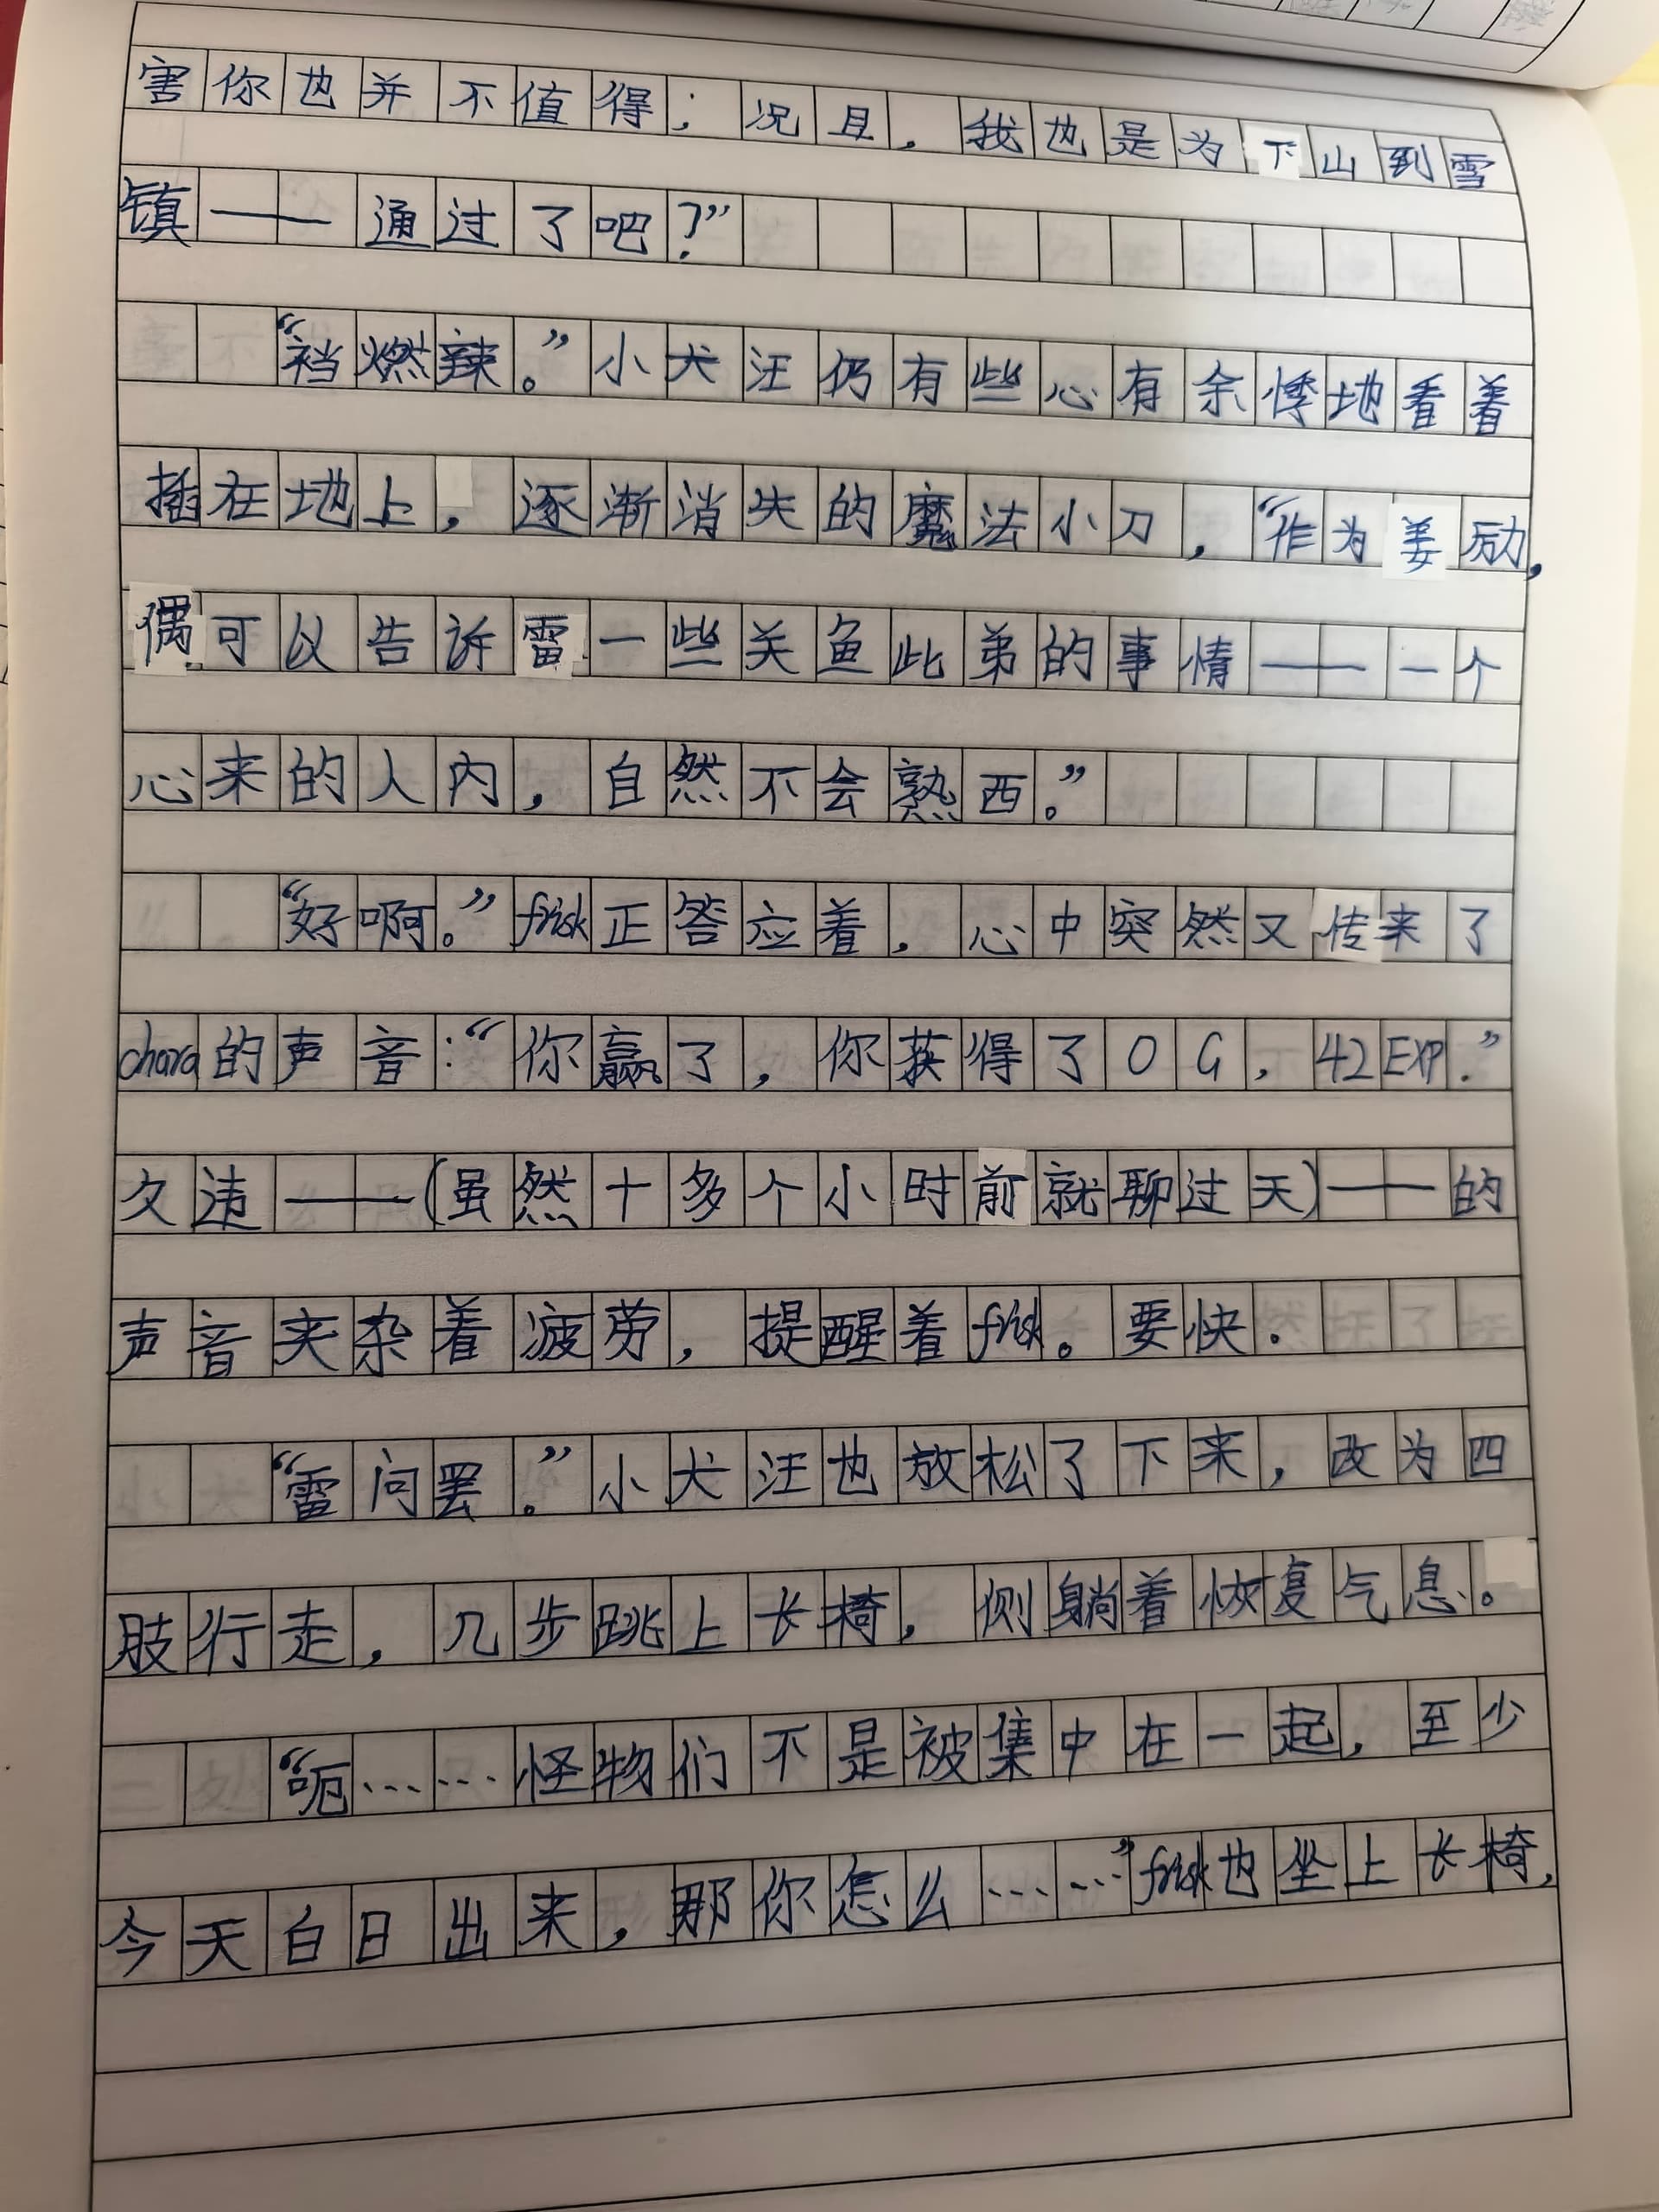 害你也并不值得；况且，我也是为下山到雪
镇——通过了吧？”
“裆燃辣。”小犬汪仍有些心有余悸地看着
插在地上，逐渐消失的魔法小刀，“作为姜励，
偶可以告诉雷一些关鱼此弟的事情——一个
心来的人内，自然不会熟西。”
“好啊。”frisk正答应着，心中突然又传来了
chara的声音：“你赢了，你获得了0G，42EXP.”
久违——（虽然十多个小时前就聊过天）——的
声音夹杂着疲劳，提醒着frisk。要快.
“雷问罢。”小犬汪也放松了下来，改为四
肢行走，几步跳上长椅，侧躺着恢复气息。
“呃……怪物们不是被集中在一起，至少
今天白日出来，那你怎么……”frisk也坐上长椅，